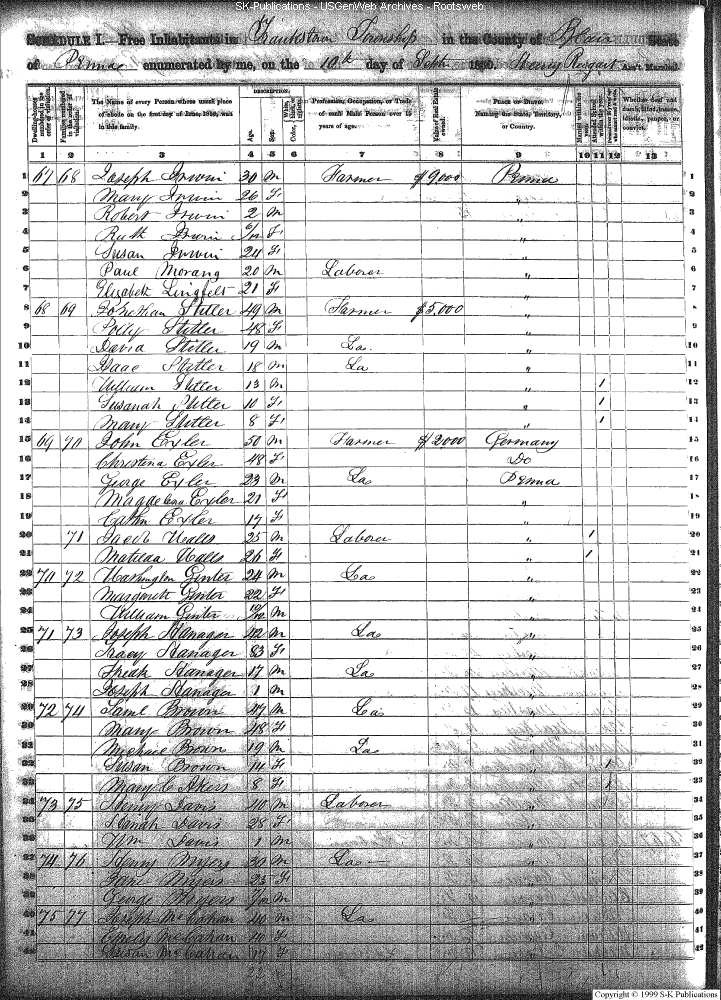 SK-Publications - USGenWeb Archives - Rootsweb
SCHEDULE I.—Free Inhabitants in Frankstown Township in the County of Blair State
of Penna enumerated by me, on the 10th day of Sept 1850. Henry Ass't Marshal.
Dwelling-houses numbered in the order of visitation. Families numbered in the order of visitation. The Name of every Person whose usual place of abode on the first day of June, 1850, was in this family. DESCRIPTION. Age. Sex. Color Profession, Occupation, or Trade of each Male Person over 15 years of age. Value of Real Estate owned. PLACE OF BIRTH. Naming the State, Territory, or Country. Married within the year. Attended School within the year. Whether deaf and dumb, blind, insane, idiotic, pauper, or convict.
1 2 3 4 5 6 7 8 9 10 11 12 13
1 67 68 Joseph Irwin 30 M Farmer $9000 Penna 1
2 Mary Irwin 26 F " 2
3 Robert Irwin 2 M " 3
4 Ruth Irwin 6/12 F " 4
5 Susan Irwin 24 F " 5
6 Paul Morang 20 M Laborer " 6
7 Elizabeth Lingfelt 21 F " 7
8 68 69 Johnathan Stitler 49 M Farmer $5,000 " 8
9 Polly Stitler 48 F " 9
10 David Stitler 19 M La. " 10
11 Isaac Stitler 18 M La " 11
12 William Stitler 13 M " 1 12
13 Susanah Stitler 10 F " 1 13
14 Mary Stitler 8 F " 1 14
15 69 70 John Exler 50 M Farmer $2000 Germany 15
16 Christena Exler 48 F Do 16
17 George Exler 23 M La Penna 17
18 Magdelena Exler 21 F " 18
19 Cathn Exler 17 F " 19
20 71 Jacob Walls 25 M Laborer " 1 20
21 Matilda Walls 26 F " 1 21
22 70 72 Washington Ginter 24 M La " 22
23 Margarett Ginter 22 F " 23
24 William Ginter 10/12 M " 24
25 71 73 Joseph Stanager 42 M La " 25
26 Tracy Stanager 33 F " 26
27 Stanager 17 M La " 27
28 Joseph Stanager 1 M " 28
29 72 74 Saml Brown 47 M La " 29
30 Mary Brown 48 F " 30
31 Michael Brown 19 M La " 31
32 Susan Brown 14 F " 1 32
33 Mary C Akers 8 F " 1 33
34 73 75 Henry Davis 40 M Laborer " 34
35 Hanah Davis 28 F " 35
36 Wm Davis 1 M " 36
37 74 76 Henry Myers 30 M La " 37
38 Jane Myers 25 F " 38
39 George Myers M " 39
40 75 77 Joseph McCahan 40 M La " 40
41 Emely McCahan 40 F " 41
42 Susan McCahan 17 F " 42
Copyright © 1999 S-K Publications